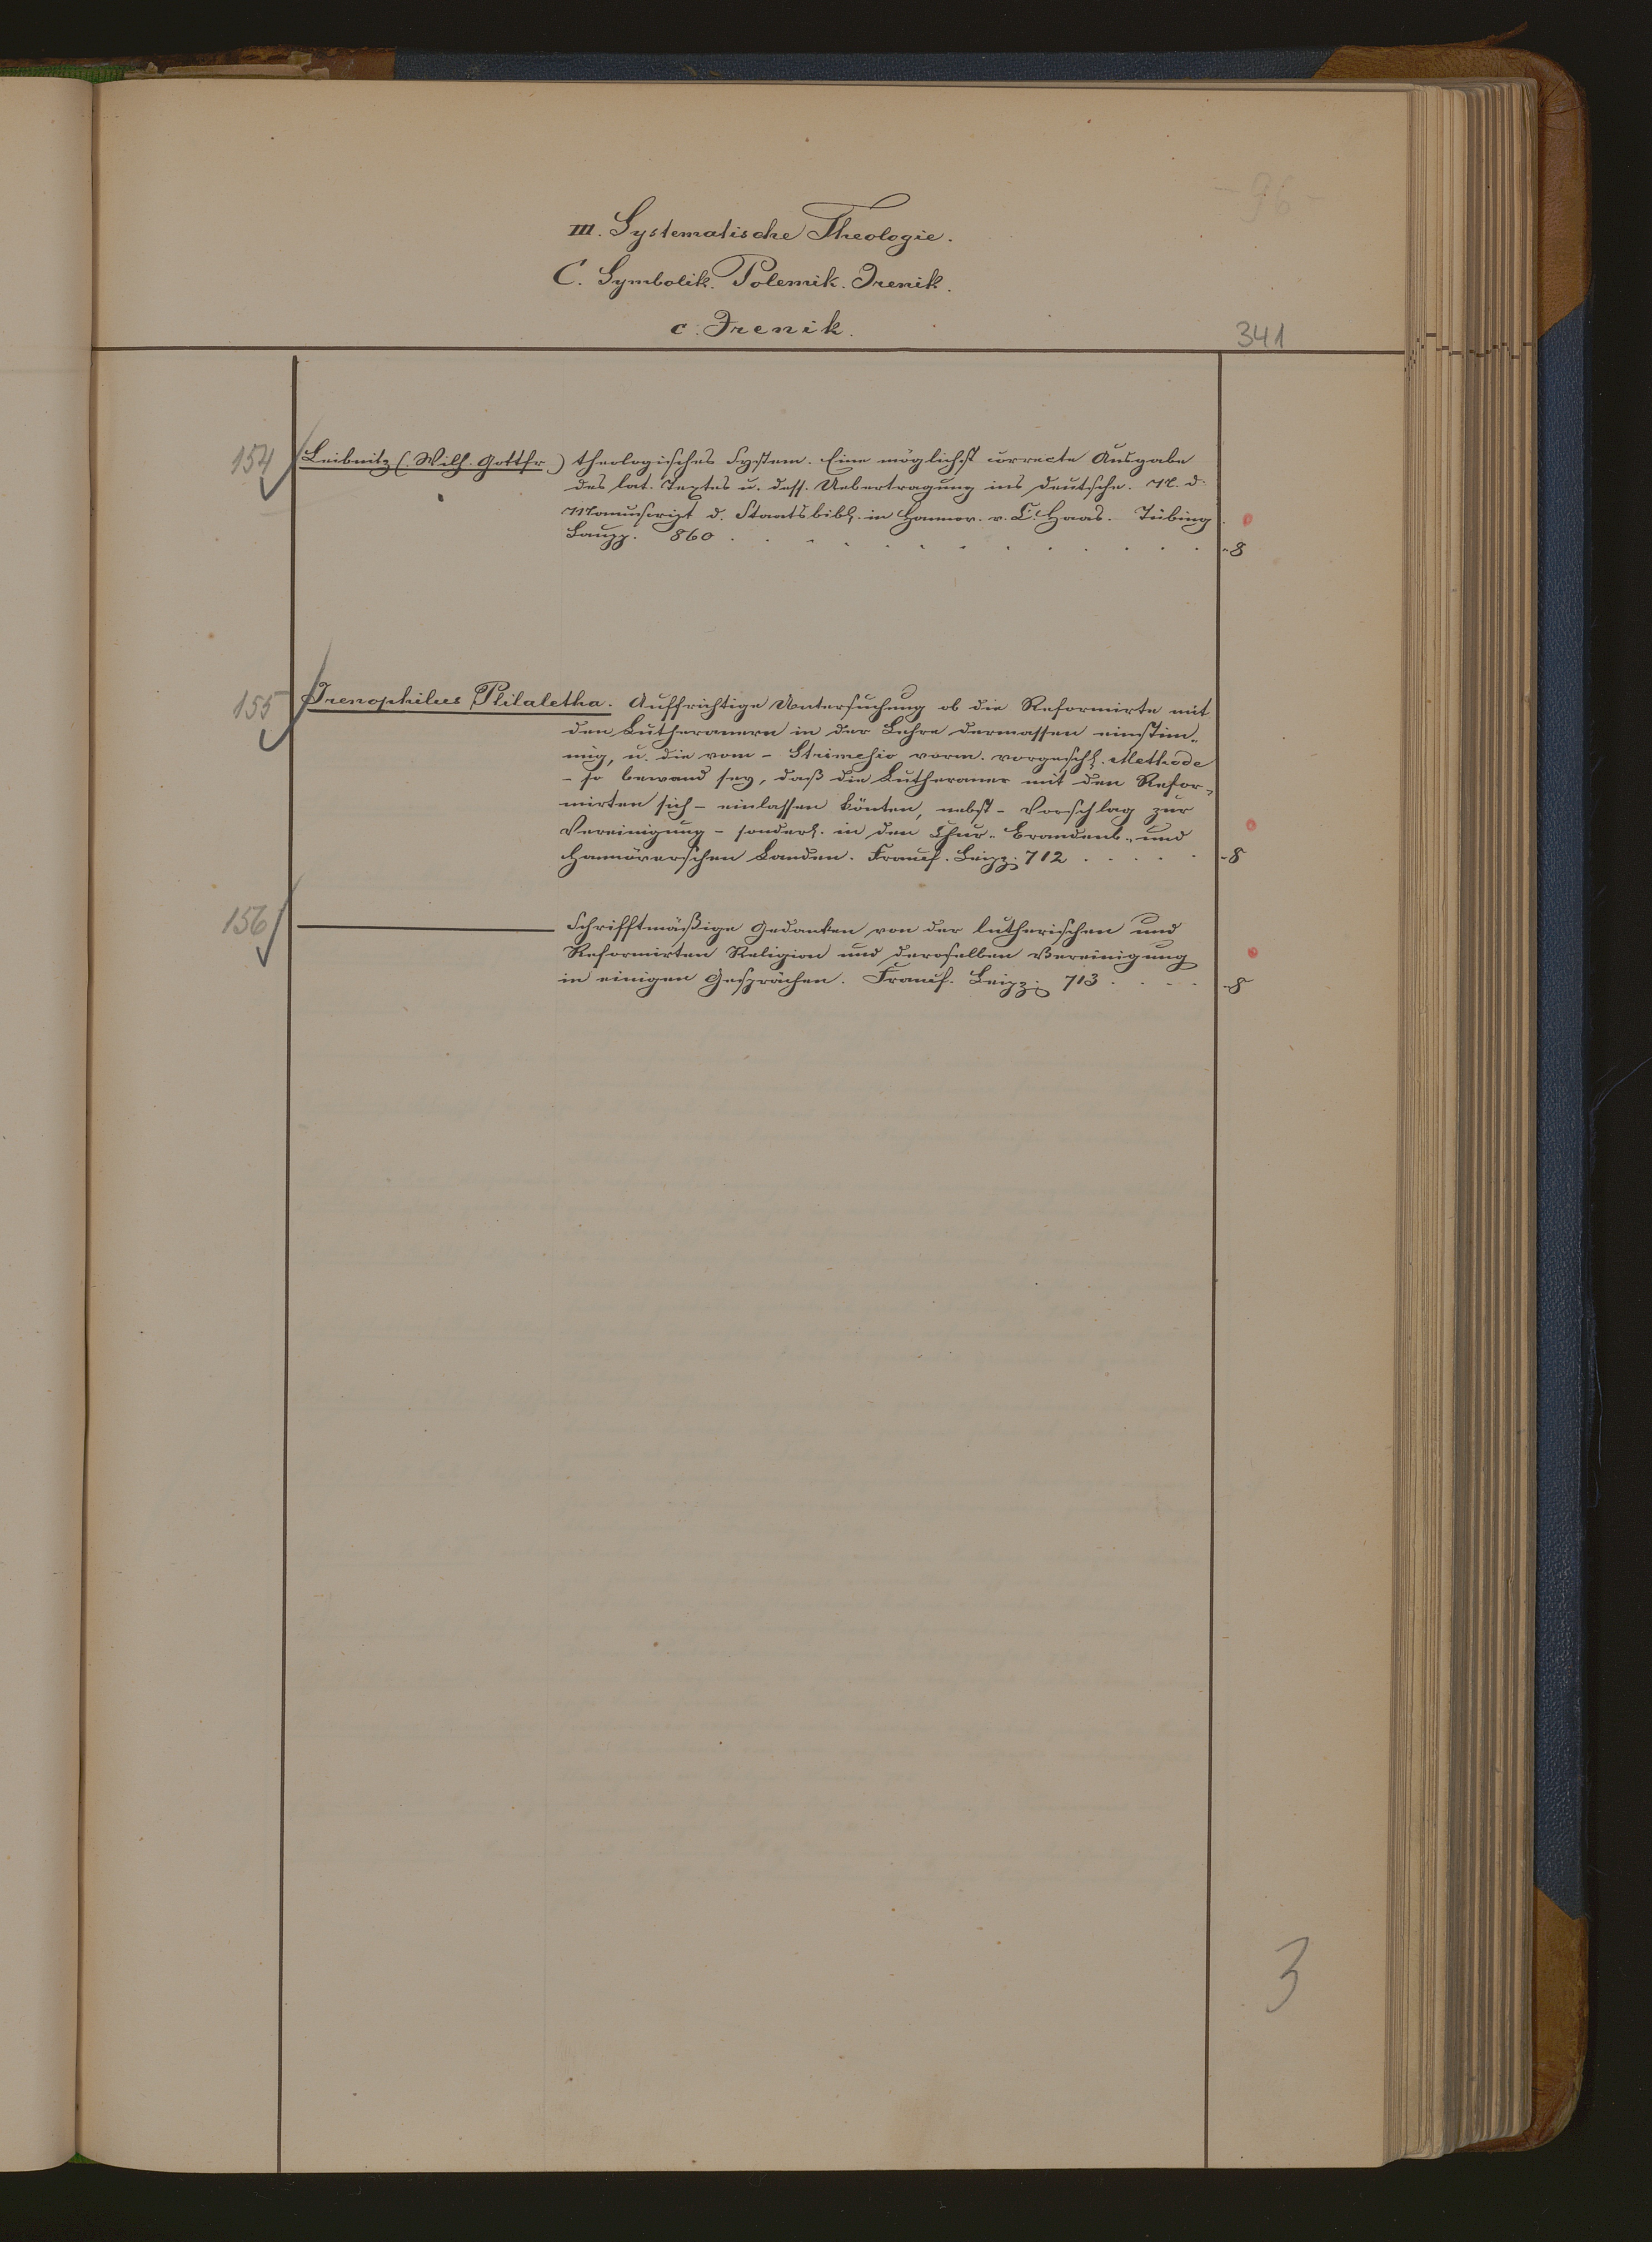 - 96 -
III. Systematische Theologie.
C. Symbolik. Polemik. Irenik.
c. Irenik.
341
154 Leibnitz (Wilh. Gottfr.) theologisches System. Eine möglichst correcte Ausgabe
des lat. Textes u. dess. Uebertragung ins Deutsche. N. d.
Manuscript d. Staatsbibl. in Hannov. v. C. Haas. Tübing.
Laupp. 860 . . . . . . . . . . . . -8
155 Irenophilus Philaletha. Auffrichtige Untersuchung ob die Reformirte mit
den Lutheranern in der Lehre dermassen einstim-
mig, u. die vom - Strimesio vorm. vorgeschl. Methode
- so bewand sey, daß die Lutheraner mit den Refor-
mirten sich - einlassen könten, nebst - Vorschlag zur
Vereinigung - sonderl. in den Chur- Brandenb. und
Hannöverschen Landen. Francf. Leipz. 712 . . . . . -8
156 ——— Schrifftmäßige Gedanken von der lutherischen und
Reformirten Religion und deroselben Vereinigung
in einigen Gesprächen. Francf. Leipz. 713 . . . . -8
3